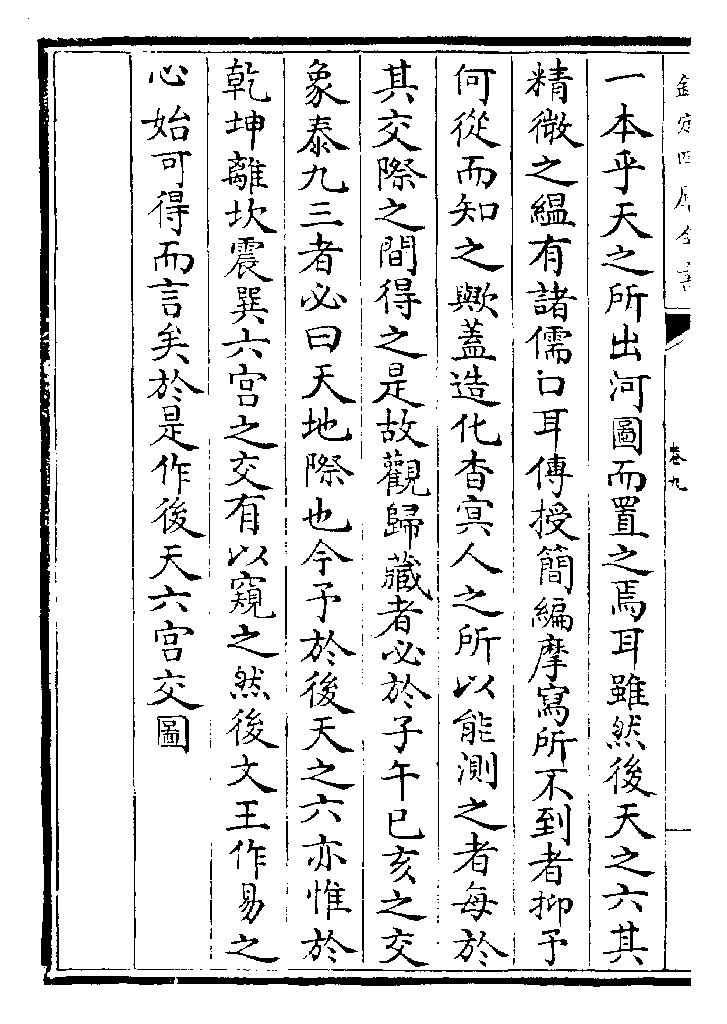 欽定四庫全書
卷九
一本乎天之所出河圖而置之焉耳雖然後天之六其
精微之緼有諸儒口耳傳授簡編摩寫所不到者抑予
何從而知之歟蓋造化杳㝠人之所以能測之者每於
其交際之間得之是故觀歸藏者必於子午巳亥之交
象泰九三者必曰天地際也今予於後天之六亦惟於
乾坤離坎震巽六宫之交有以窺之然後文王作易之
心始可得而言矣於是作後天六宫交圖